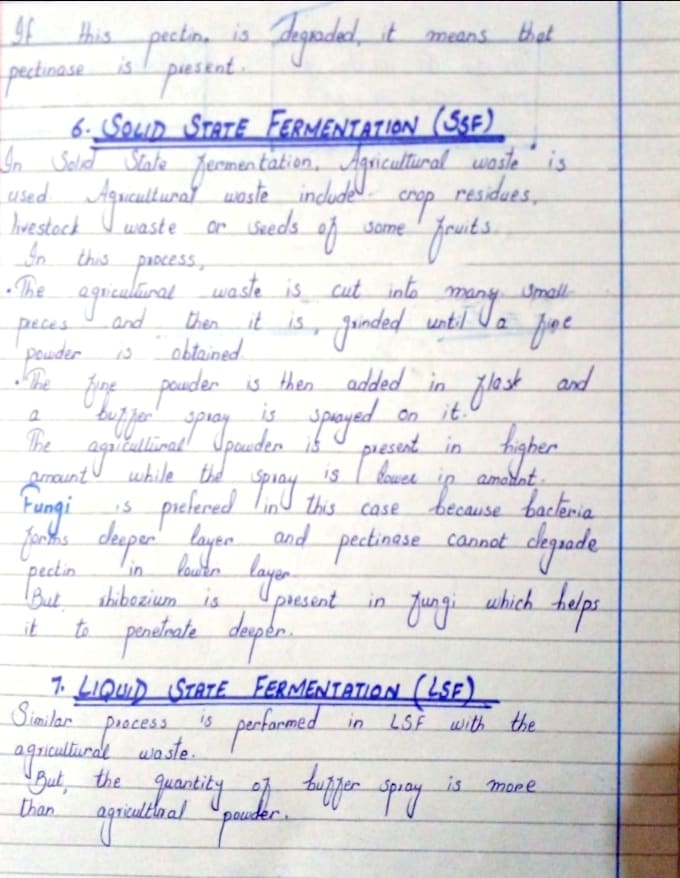 If this pectin, is degraded, it means that
pectinase is present.
6. SOLID STATE FERMENTATION (SSF)
In Solid State fermentation, Agricultural waste is
used. Agricultural waste include crop residues,
livestock waste or seeds of some fruits.
In this process,
• The agricultural waste is cut into many small
pieces and then it is grinded until a fine
powder is obtained.
• The fine powder is then added in flask and
a buffer spray is sprayed on it.
The agricultural powder is present in higher
amount while the spray is lower in amount.
Fungi is prefered in this case because bacteria
forms deeper layer and pectinase cannot degrade
pectin in lower layer.
But rhibozium is present in fungi which helps
it to penetrate deeper.
7. LIQUID STATE FERMENTATION (LSF)
Similar process is performed in LSF with the
agricultural waste.
But, the quantity of buffer spray is more
than agricultural powder.